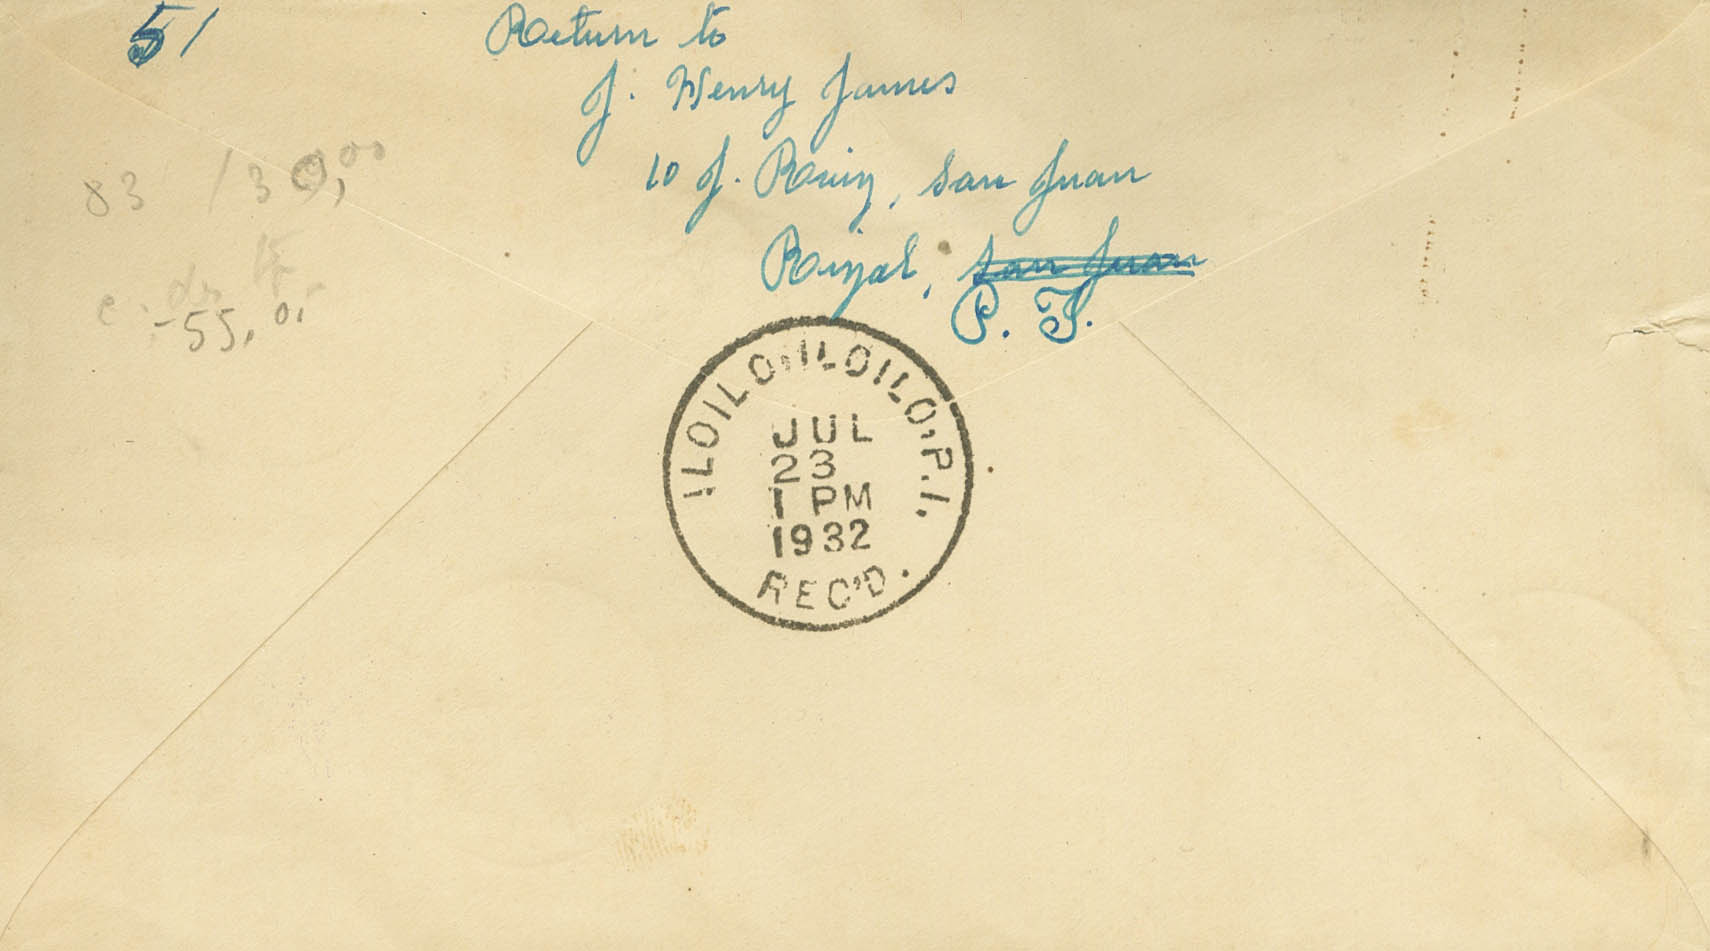 51
Return to
J. Henry James
10 J. Ruiz, San Juan
Rizal, San Juan
P. I.
83 / 30,00
-55,0,
ILOILO, ILOILO, P.I.
JUL
23
1 PM
1932
REC'D.